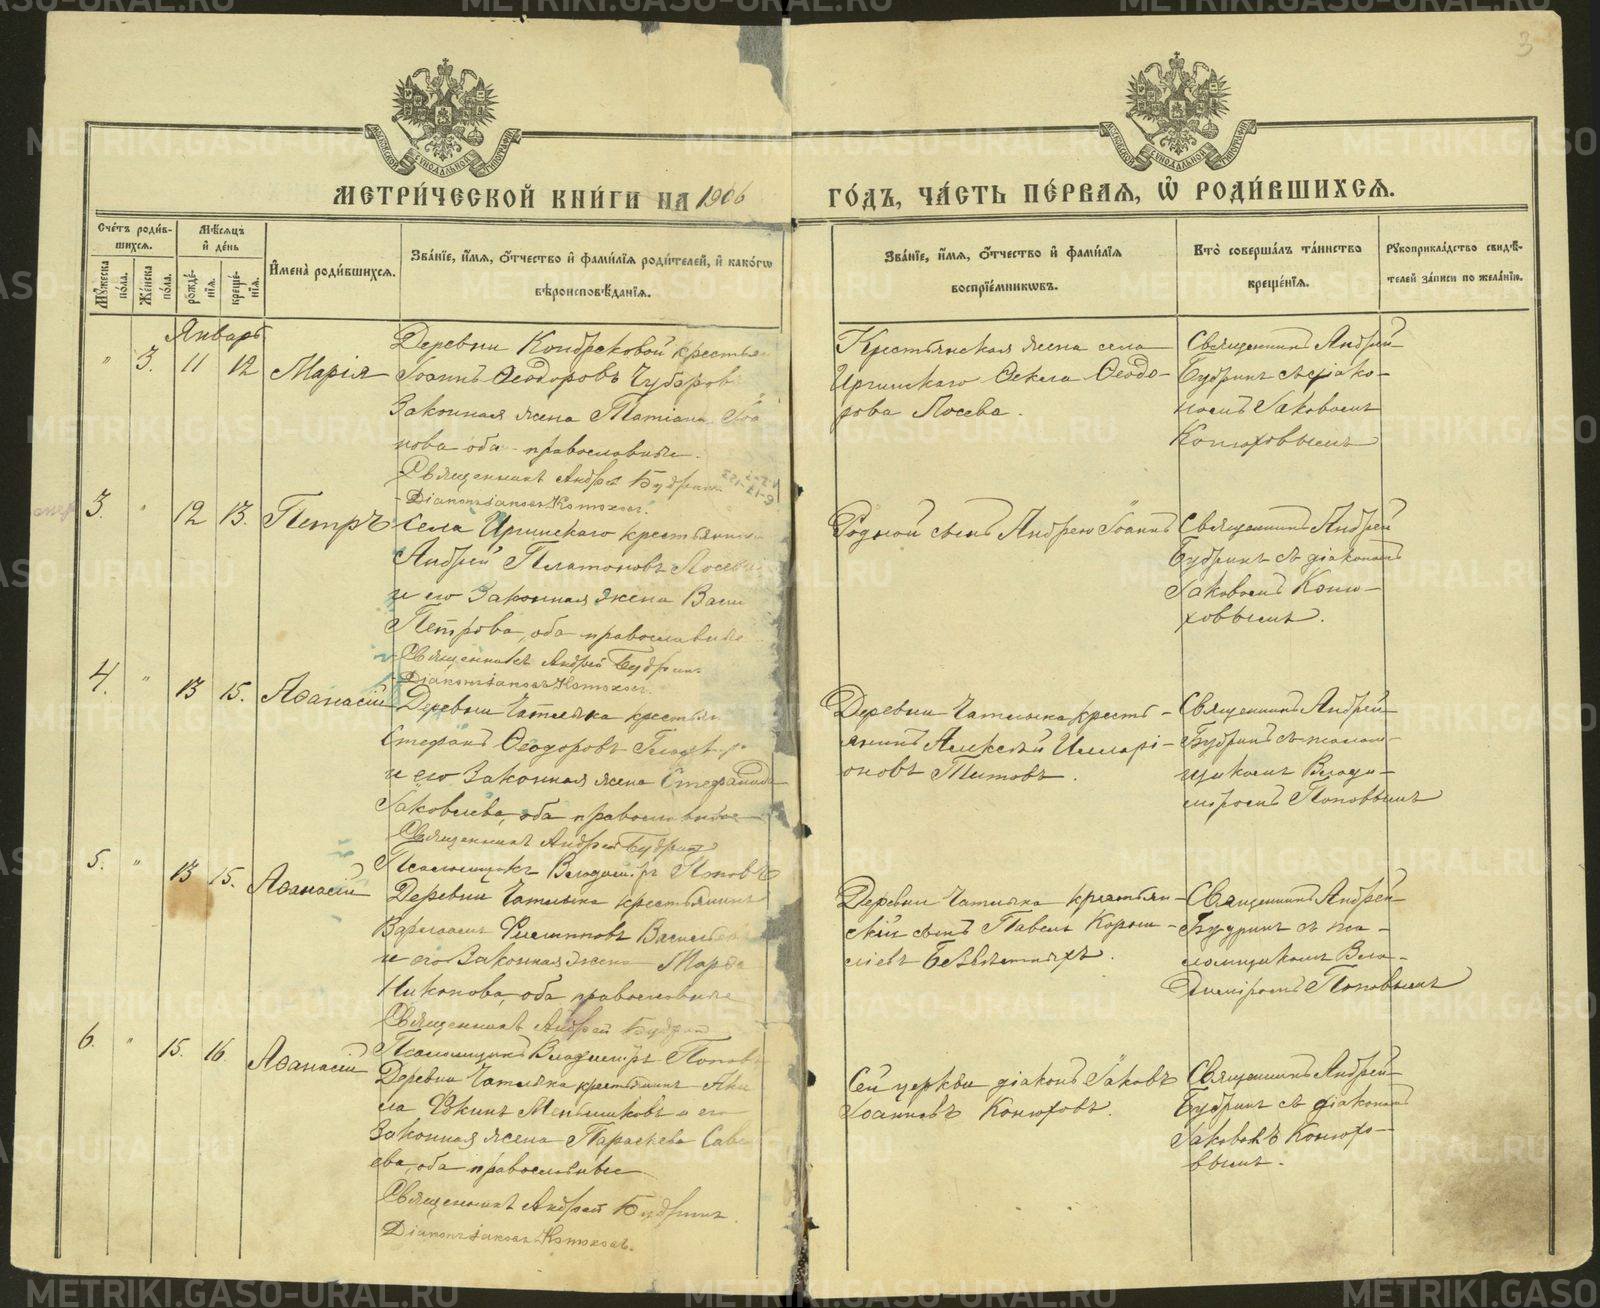 3
МОСКОВСКОЙ СѴНОДАЛЬНОЙ ТИПОГРАФІИ
МОСКОВСКОЙ СѴНОДАЛЬНОЙ ТИПОГРАФІИ
МЕТРИ́ЧЕСКОЙ КНИ́ГИ НА 1906
ГО́ДЪ, ЧА́СТЬ ПЕ́РВАЯ, Ѽ РОДИ́ВШИХСЯ.
Сче́тъ роди́в-
шихся.
Му́жеска по́ла.
Же́нска по́ла.
Мѣ́сяцъ
и҆ де́нь
рожде́-
нїя.
креще́-
нїя.
И҆мена̀ роди́вшихся.
Зва́нїе, и҆́мя, ѻ҆́тчество и҆ фами́лїя роди́телей, и҆ како́гѡ
вѣроисповѣ́данїя.
Зва́нїе, и҆́мя, ѻ҆́тчество и҆ фами́лїя
воспрїе́мникѡвъ.
Кто̀ соверша́лъ та́инство
креще́нїя.
Рꙋкоприкла́дство свидѣ́-
телей за́писи по жела́нїю.
Январь
" 3. 11 12 Марія
Деревни Кондраковой крестьян
Іоаннъ Ѳеодоровъ Чубаровъ
Законная жена Татіана Іоа
нова оба православные.
Священникъ Андрей Будринъ
Діаконъ Іаковъ Конюховъ.
Крестьянская жена села
Иргинскаго Ѳекла Ѳеодо-
рова Лосева.
Священникъ Андрей
Будринъ съ діако-
номъ Іаковомъ
Конюховымъ
3. " 12 13. Петръ
Села Иргинскаго крестьянинъ
Андрей Платоновъ Лосевъ
и его Законная жена Васи
Петрова, оба православные
Священникъ Андрей Будринъ
Діаконъ Іаковъ Конюховъ.
Родной сынъ Андрею Іоаннъ
Священникъ Андрей
Будринъ съ діакономъ
Іаковомъ Коню-
ховымъ.
4. " 13 15. Аѳанасій
Деревни Чатлыка крестьян
Стефанъ Ѳеодоровъ
и его Законная жена Стефанида
Іаковлева, оба православные
Священникъ Андрей Будринъ
Псаломщикъ Владиміръ Поповъ
Деревни Чатлыка кресть-
янинъ Алексѣй Иларі-
оновъ Титовъ.
Священникъ Андрей
Будринъ съ псалом-
щикомъ Влади-
міромъ Поповымъ
5. " 13 15. Аѳанасій
Деревни Чатлыка крестьянинъ
Варлаамъ Филипповъ Василь
и его Законная жена Марѳа
Никонова, оба православные
Священникъ Андрей Будрин
Псаломщикъ Владиміръ Поповъ
Деревни Чатлыка крестьян-
скій сынъ Павелъ Корни-
ліевъ Безматыхъ.
Священникъ Андрей
Будринъ съ пса-
ломщикомъ Вла-
диміромъ Поповымъ
6. " 15. 16 Аѳанасій
Деревни Чатлыка крестьянинъ Аки
ла Ѳокинъ Меньшиковъ и его
Законная жена Параскева Сав
ева, оба православные
Священникъ Андрей Будринъ.
Діаконъ Іаковъ Конюховъ.
Сей церкви діаконъ Іаковъ
Іоанновъ Конюховъ.
Священникъ Андрей
Будринъ съ діакономъ
Іаковомъ Конюхо-
вымъ.
METRIKI.GASO-URAL.RU